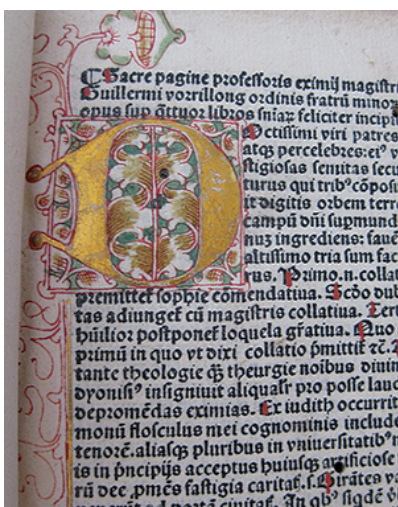 Sacre pagine professoris eximij magistri
Guillermi vorrillong ordinis fratrũ minor
opus sup q̃ttuor libros sniaꝝ feliciter incipi
Doctissimi viri patres
atqꝫ percelebres: eiꝰ v
stigiosas semitas secu
turus qui tribꝰ cõposu
it digitis orbem terre
campũ dñi supmund
nuꝫ ingrediens: faue
altissimo tria sum fac
rus. Primo.n. collat
premittet̃ sophie cõmendatiua. Scðo dub
tas adiunget̃ cũ magistris collatiua. Tert
hũilior postponet̃ loquela gr̃atiua. Quo
primũ in quo vt dixi collatio p̃mittit̃ ⁊c.
tante theologie q̃ꝫ theurgie noibus diuin
dyonisiꝰ insigniuit aliqualr̃ pro posse laud
depromẽdas eximias. Ex iudith occurrit
monũ flosculus mei cognominis include
tenorẽ. aliasqꝫ pluribus in vniuersitatibꝰ
is in p̃ncipijs acceptus huiusqꝫ artificiose
rũ dec ,pmẽs fastigia caritat̃.s. Girãtes va